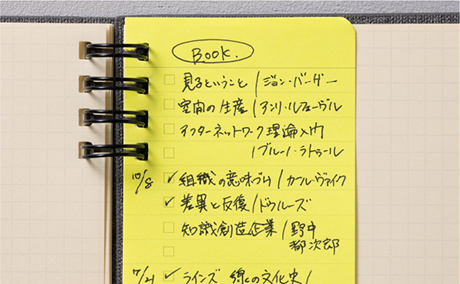 Book.
見るということ / ジョン・バージャー
空間の生産 / アンリ・ルフェーヴル
アクターネットワーク理論入門
/ ブルーノ・ラトゥール
10/8 ✓ 組織の意味づけ / カール・ワイク
✓ 差異と反復 / ドゥルーズ
知識創造企業 / 野中
郁次郎
7/21 ✓ ラインズ 線の文化史 /